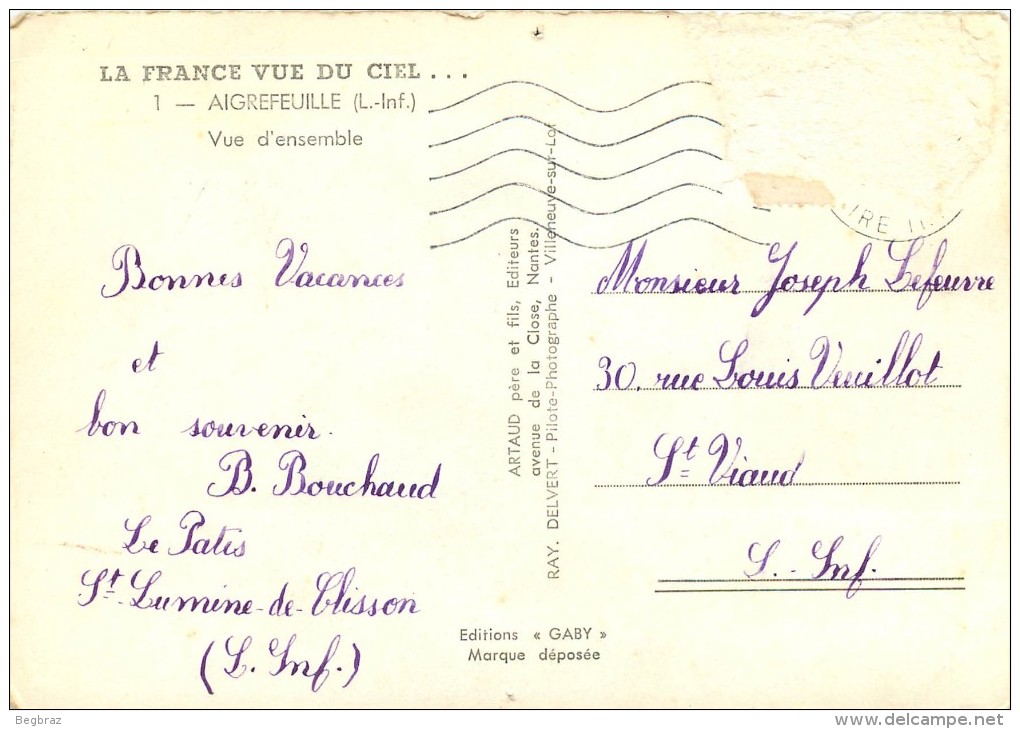 LA FRANCE VUE DU CIEL ...
1 — AIGREFEUILLE (L.-Inf.)
Vue d'ensemble
Bonnes Vacances
et
bon souvenir.
B. Bouchaud
Le Patis
St Lumine-de-Clisson
(L. Inf.)
ARTAUD père et fils, Editeurs
avenue de la Close, Nantes.
RAY. DELVERT - Pilote-Photographe - Villeneuve-sur-Lot
Editions « GABY »
Marque déposée
Monsieur Joseph Lefeuvre
30, rue Louis Veuillot
St Viaud
L.-Inf.
Begbraz
www.delcampe.net